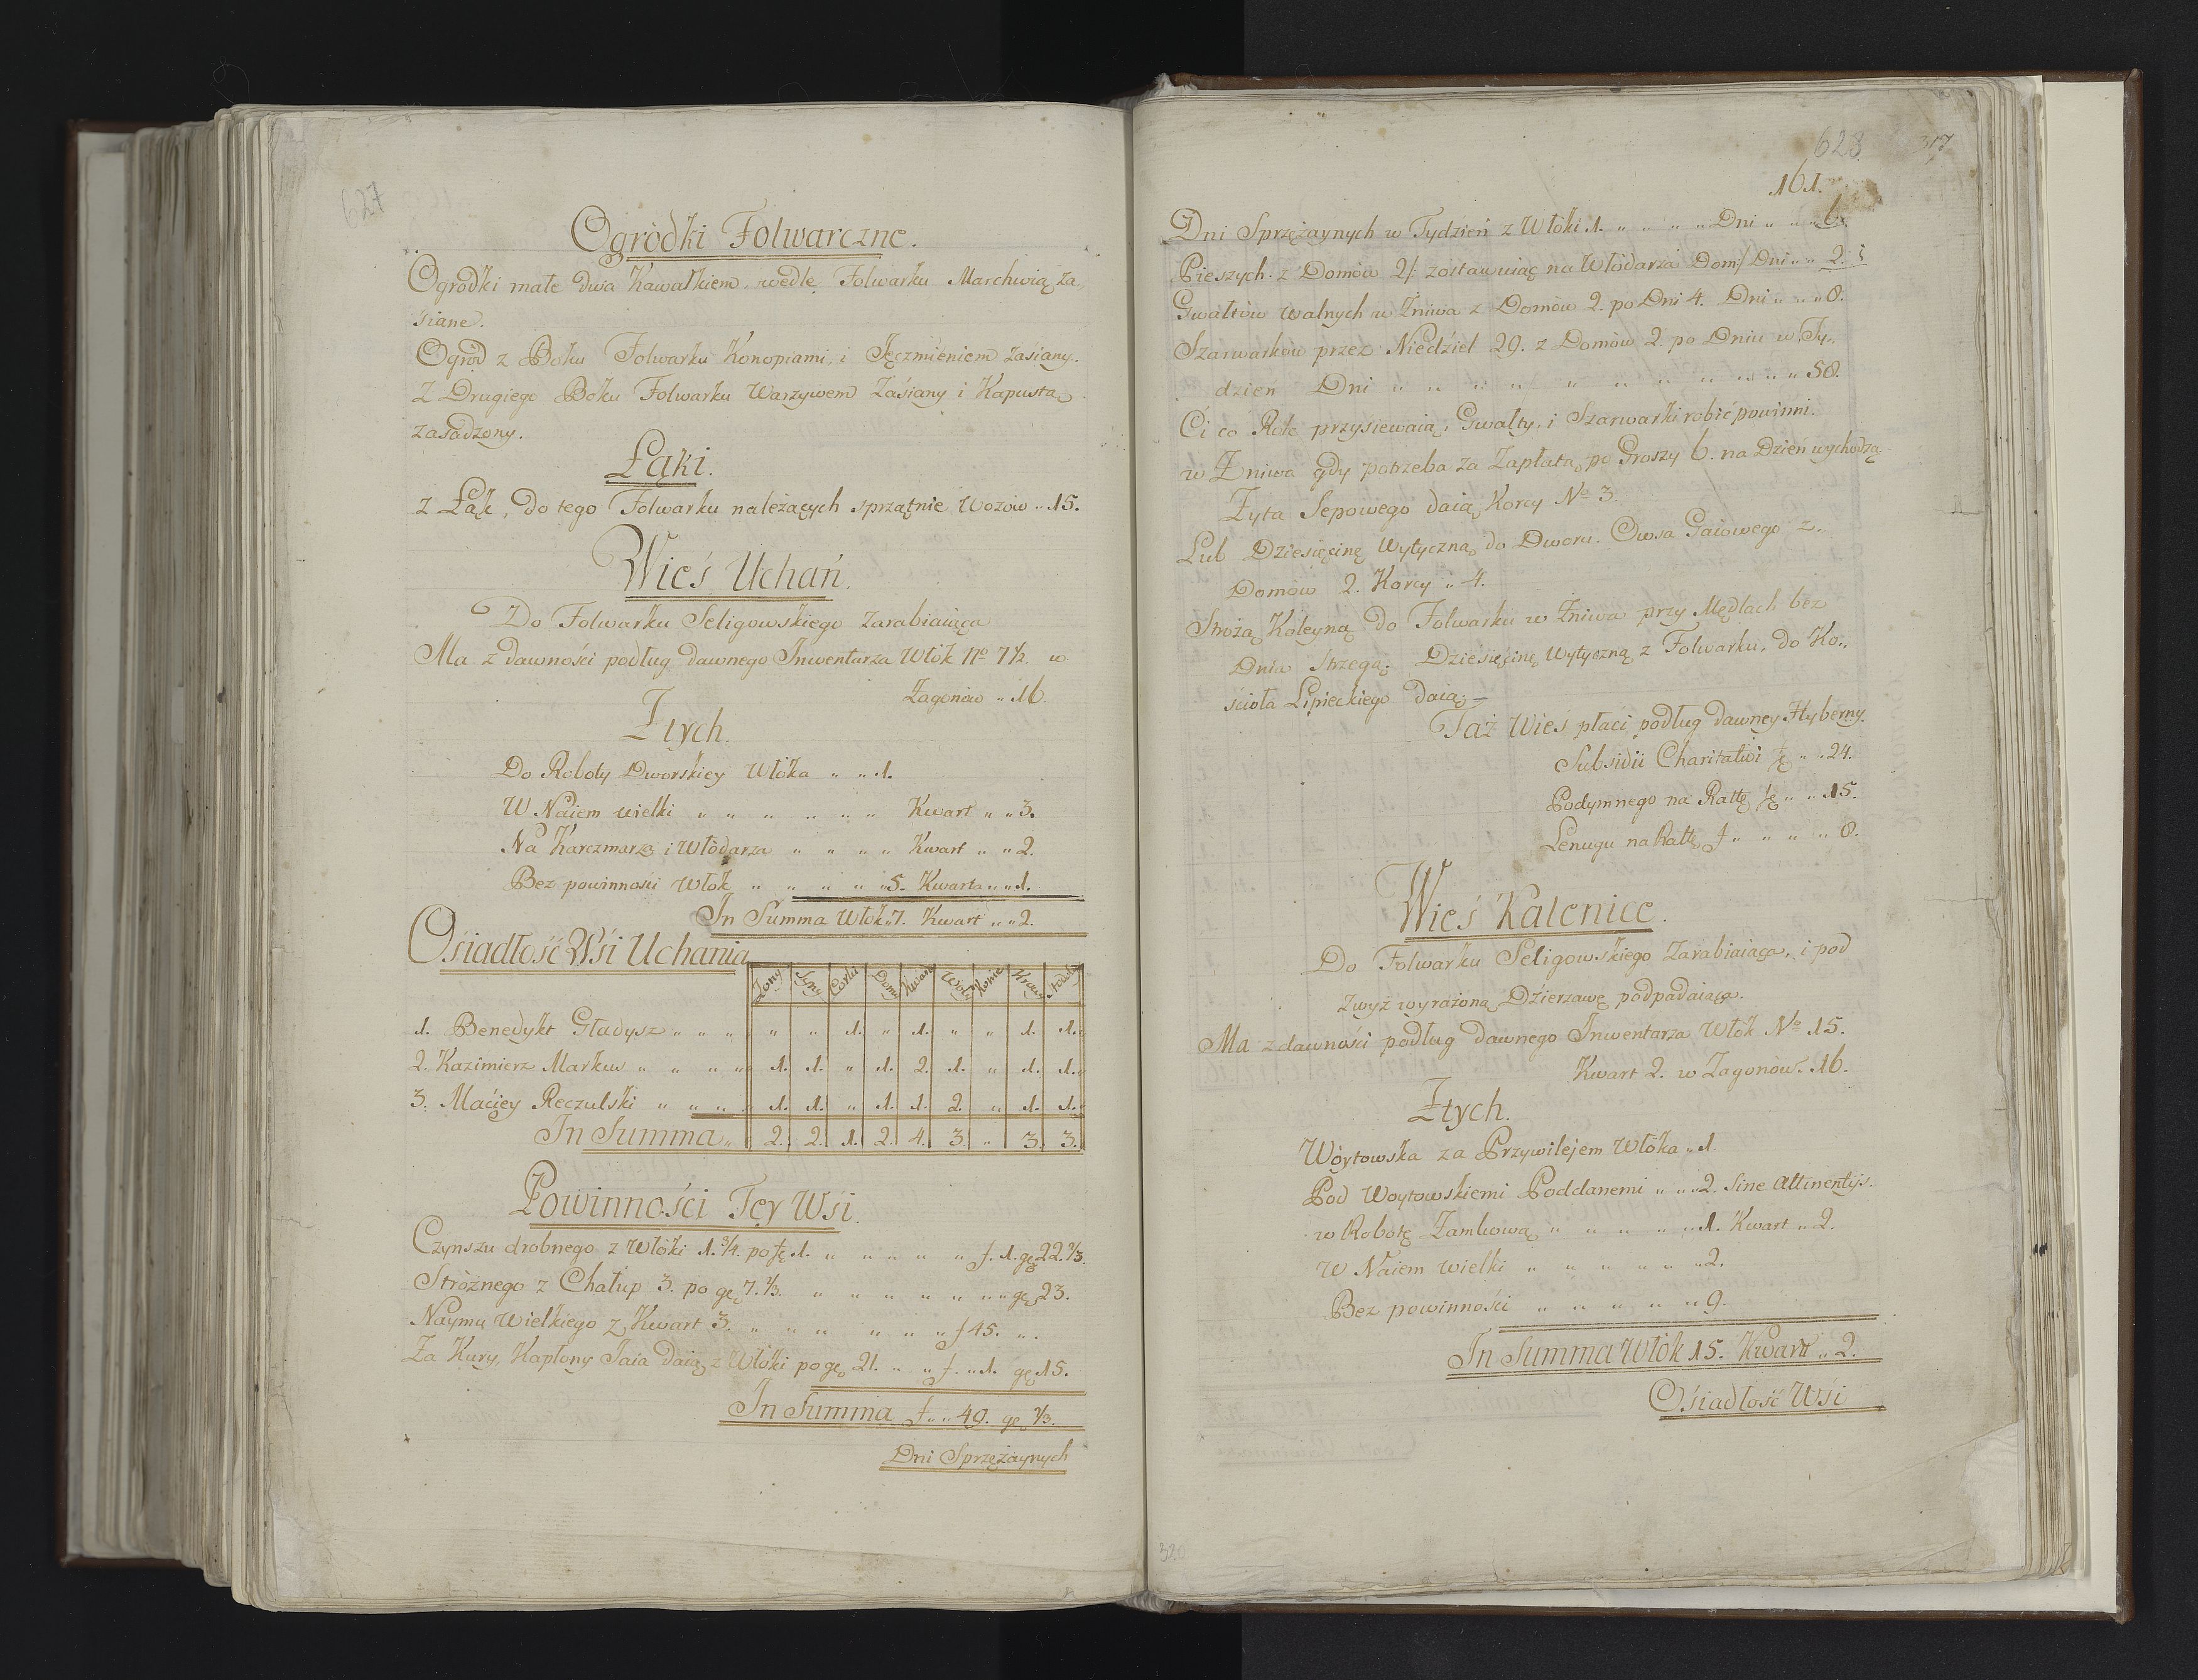 627
Ogródki Folwarczne.
Ogrodki małe dwa Kawałkiem wedle Folwarku Marchwią za„
siane.
Ogrod z Boku Folwarku Konopiami, i Jęczmieniem zasiany.
Z Drugiego Boku Folwarku Warzywem Zasiany i Kapustą
zasadzony.
Łąki.
Z Łąk, do tego Folwarku należących sprzątnie Wozow „ 15.
Wieś Uchań.
Do Folwarku Seligowskiego zarabiaiąca
Ma z dawności podług dawnego Inwentarza Włok Nº 7 1/2. w
Zagonow „ 16.
Z tych.
Do Roboty Dworskiey Włóka „ „ 1.
W Naiem wielki „ „ „ „ „ „ Kwart „ „ 3.
Na Karczmarza i Włódarza „ „ „ „ Kwart „ „ 2.
Bez powinności Włok „ „ „ „ „ 5. Kwarta „ „ 1.
In Summa Włok „ 7. Kwart „ „ 2.
Osiadłość Wsi Uchania
Żony Syny Corki Domy Kwart Woły Konie Krowy
1. Benedykt Gładysz „ „ „ „ „ 1. „ 1. „ „ 1. 1.
2. Kazimierz Markw „ „ „ „ 1. 1. „ 1. 2. 1. „ 1. 1.
3. Maciey Reczulski „ „ „ „ 1. 1. „ 1. 1. 2. „ 1. 1.
In Summa „ 2. 2. 1. 2. 4. 3. „ 3. 3.
Powinności Tey Wsi.
Czynszu drobnego z Włoki 1. 3/4. po 1. „ „ „ „ „ f. 1. gę 22. 2/3.
Stróżnego z Chałup 3. po gę 7. 2/3. „ „ „ „ „ „ „ gę 23.
Naymu Wielkiego z Kwart 3. „ „ „ „ „ „ f 45. „ .
Za Kury, Kapłony Jaia daią z Włóki po gę 21. „ „ f. „ 1. gę 15.
In Summa f „ „ 49. gę 2/3.
Dni Sprzężaynych
628 317
161.
Dni Sprzężaynych w Tydzień z Włóki 1. „ „ „ „ Dni „ „ „ 6.
Pieszych z Domów 2/ zostawuiąc na Włódarza Dom/ Dni „ „ 2.
Gwałtów walnych w Żniwa z Domów 2. po Dni 4. Dni „ „ „ 8.
Szarwarków przez Niedziel 29. z Domów 2. po Dniu w Ty„
dzień Dni „ „ „ „ „ „ „ „ „ „ „ 58.
Ci co Role przysiewaią, Gwałty, i Szarwarki robić powinni.
w Żniwa gdy potrzeba za Zapłatą po Groszy 6. na Dzień wychodzą.
Żyta Sepowego daią Korcy Nº 3.
Lub Dziesięcinę Wytyczną do Dworu. Owsa Gaiowego z„
Domów 2. Korcy „ 4.
Strożą Koleyną do Folwarku w Żniwa przy Mędlach bez
Dnia strzegą. Dziesięcinę Wytyczną z Folwarku, do Ko„
ścioła Lipieckiego daią. —
Taż Wieś płaci podług dawney Hyberny.
Subsidii Charitativi „ „ 24.
Podymnego na Rattę „ „ 15.
Lenugu na Rattę f „ „ „ „ 8.
Wieś Kalenice.
Do Folwarku Seligowskiego Zarabiaiąca, i pod
Zwyż wyrażoną Dzierzawę podpadaiąca.
Ma z dawności podług dawnego Inwentarza Włók Nº 15.
Kwart 2. w Zagonów „ 16.
Z tych.
Wóytowska za Przywilejem Włóka „ 1.
Pod Woytowskiemi Poddanemi „ „ „ 2. Sine Attinentijs.
w Robotę Zamkową „ „ „ „ „ 1. Kwart „ 2.
W Naiem Wielki „ „ „ „ „ „ 2.
Bez powinności „ „ „ „ „ 9.
In Summa Włók 15. Kwart „ 2.
Osiadłość Wsi
320